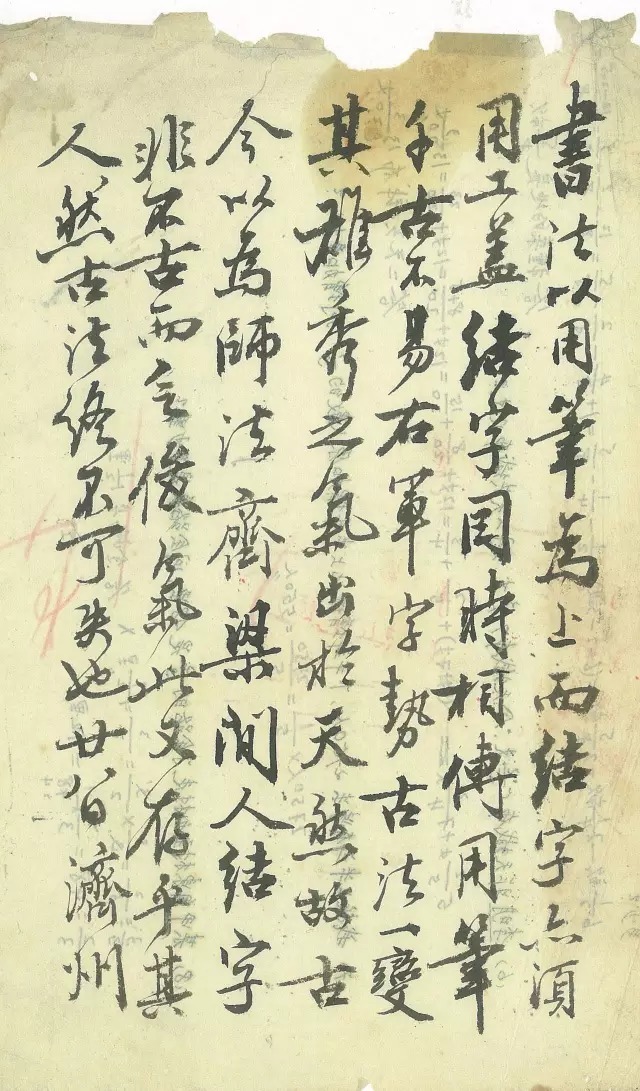 書法以用筆為上而結字亦須
用工蓋結字因時相傳用筆
千古不易右軍字勢古法一變
其雄秀之氣出於天然故古
今以為師法齊梁間人結字
非不古而乏俊氣此又存乎其
人然古法終不可失也廿八日濟州